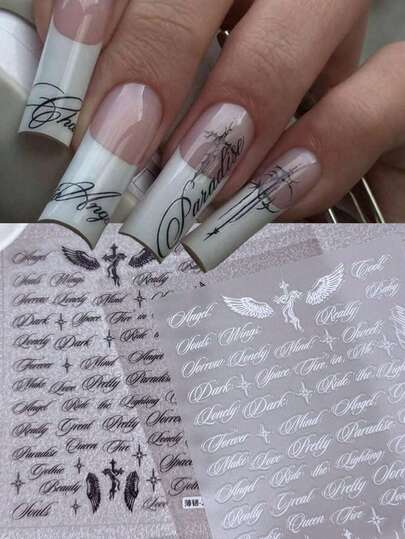 Cha
Ang
Paradise
Angel
Souls Wings
Really
Sorrow Lonely Mind
Dark Space Fire in
Lonely Dark Ride the
Forever Mind Angel
Make Love Pretty Paradise
Angel Ride the Lighting
Really Great Pretty
Paradise Queen Fire
Gothic
Beauty
Souls
Cool
Angel Really Baby
Souls Wings
Sorrow Lonely Mind Sweet
Dark Space Fire in Me
Lonely Dark Ride the
Forever Mind Angel
Make Love Pretty Paradise
Angel Ride the Lighting
Really Great Pretty Sorrow
Queen Fire